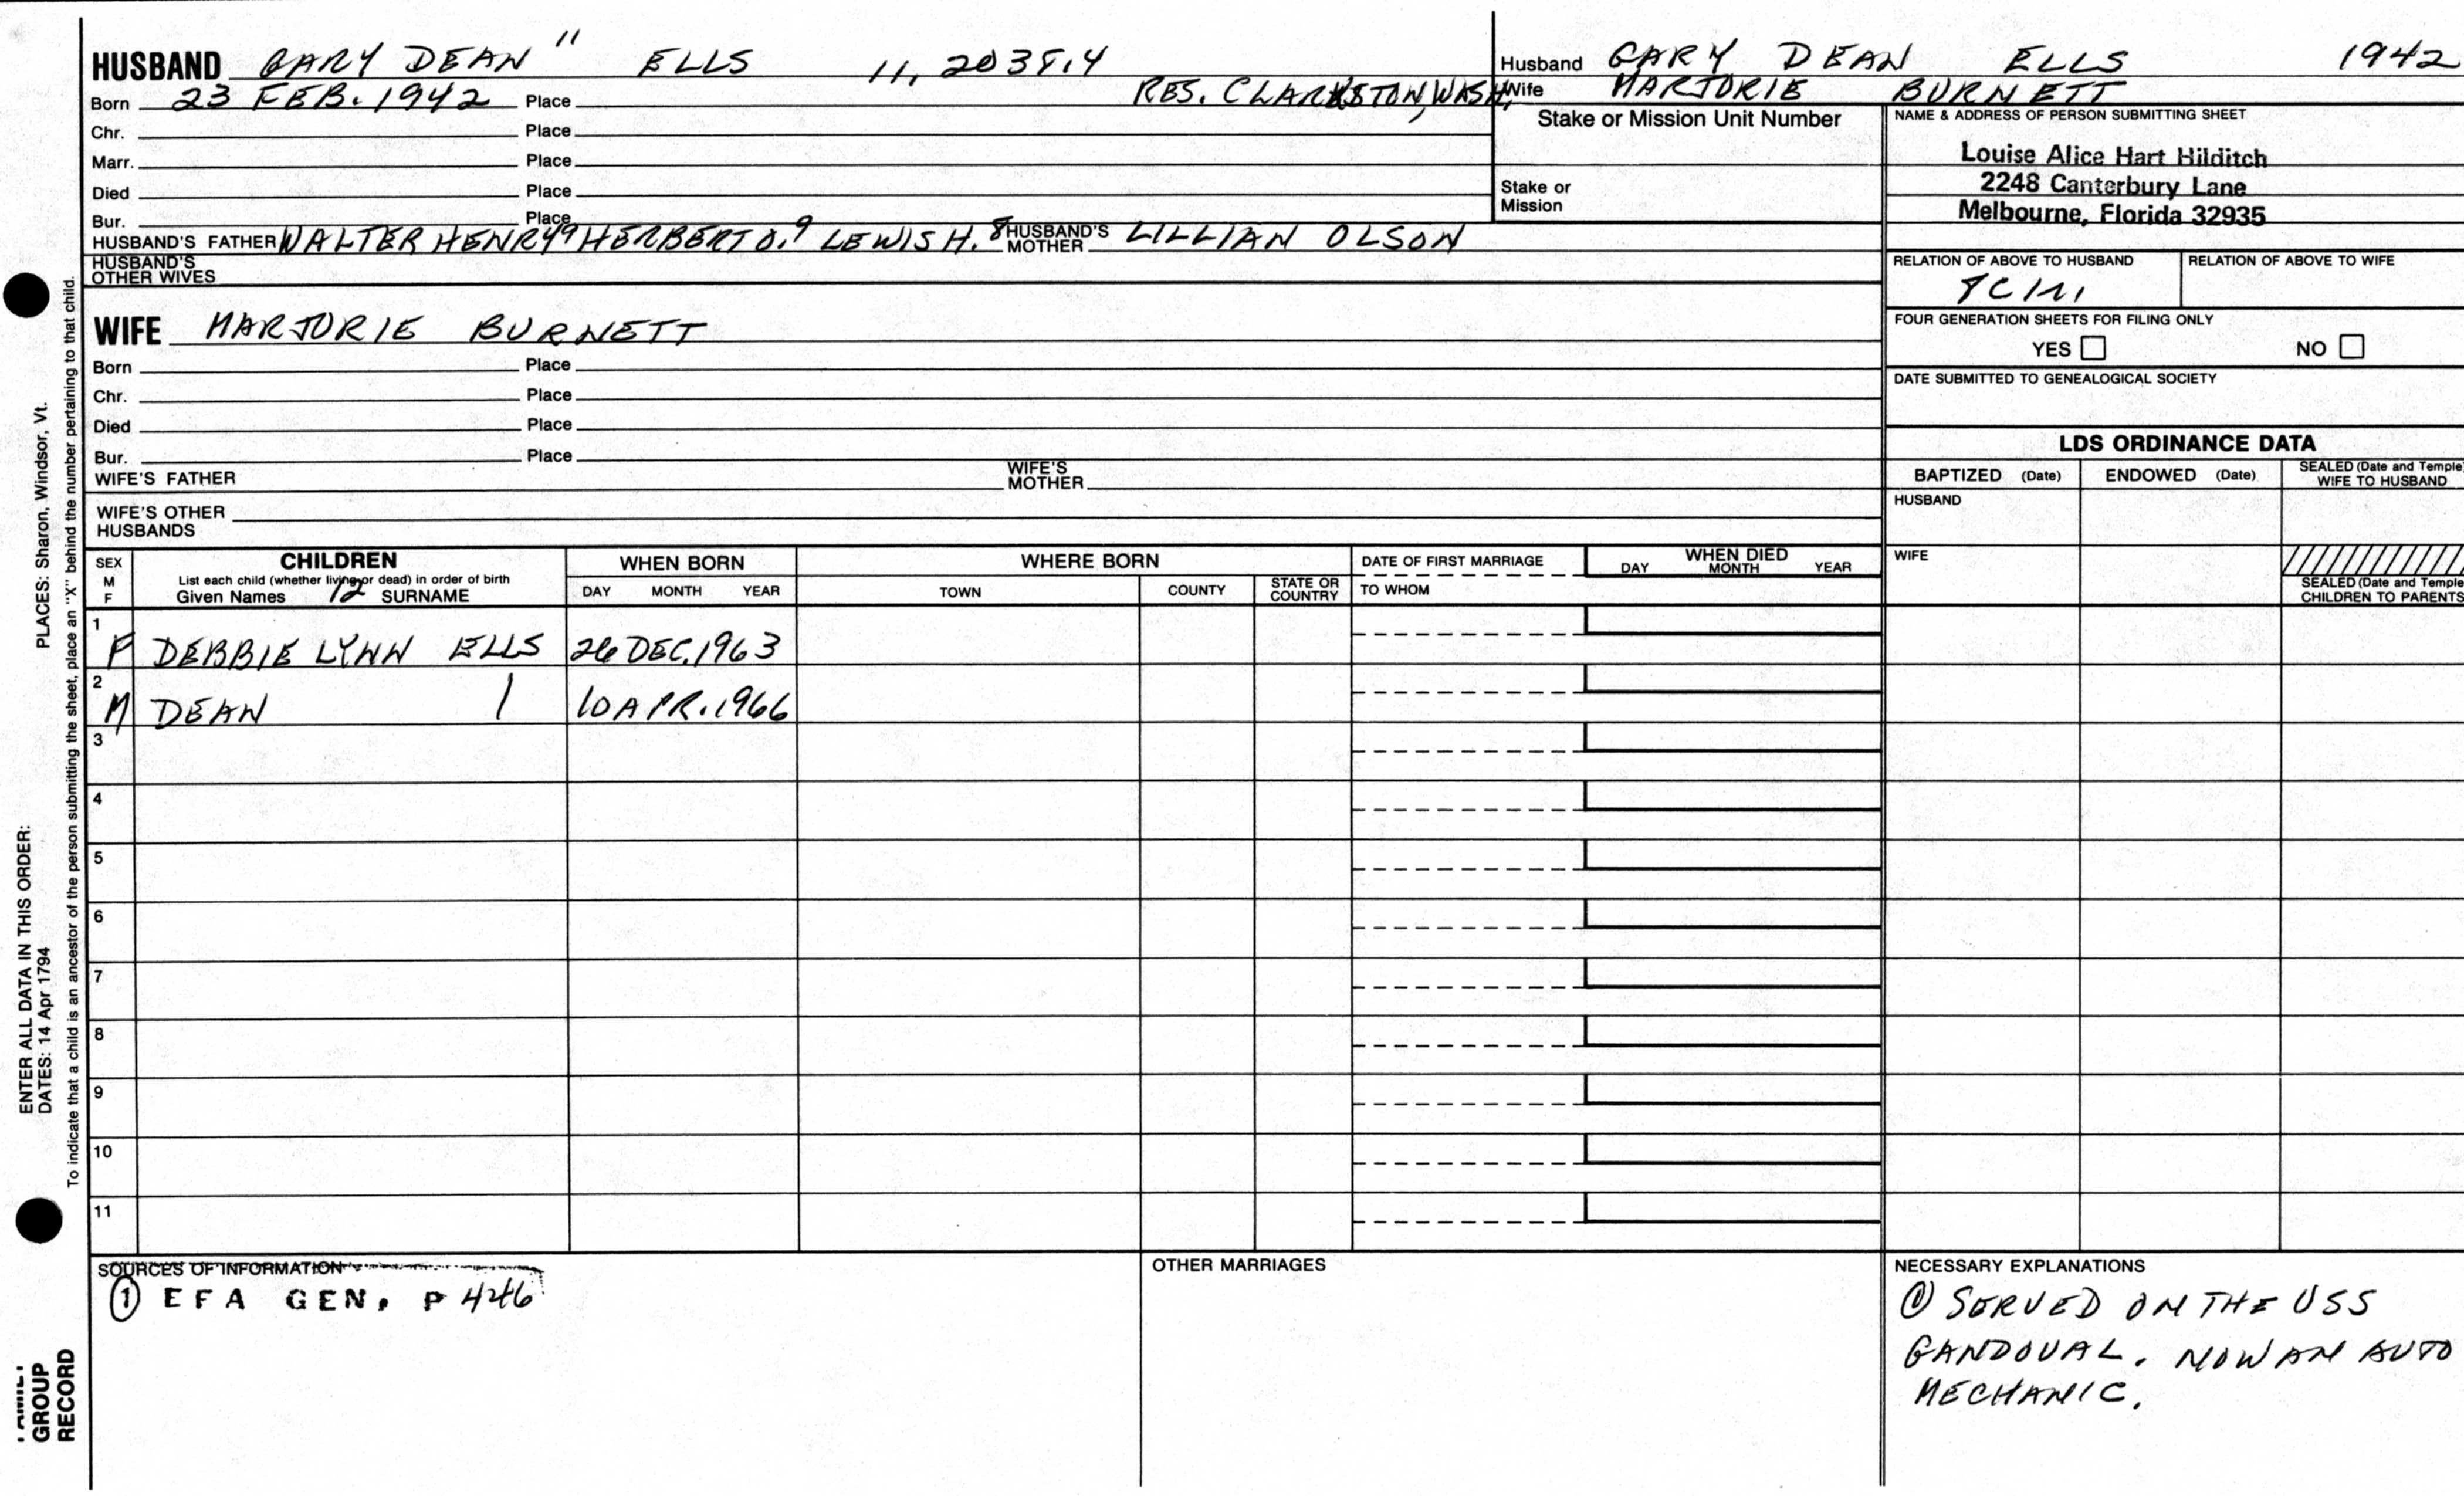 HUSBAND GARY DEAN 11 ELLS 11, 2038.4
Born 23 FEB. 1942 Place RES. CLARKSTON, WASH.
Chr. Place
Marr. Place
Died Place
Bur. Place
HUSBAND'S FATHER WALTER HENRY HERBERT O. 9 LEWIS H. 8 HUSBAND'S MOTHER LILLIAN OLSON
HUSBAND'S OTHER WIVES
Husband GARY DEAN ELLS 1942
Wife MARJORIE BURNETT
Stake or Mission Unit Number
Stake or Mission
NAME & ADDRESS OF PERSON SUBMITTING SHEET
Louise Alice Hart Hilditch
2248 Canterbury Lane
Melbourne, Florida 32935
RELATION OF ABOVE TO HUSBAND RELATION OF ABOVE TO WIFE
FOUR GENERATION SHEETS FOR FILING ONLY
YES NO
DATE SUBMITTED TO GENEALOGICAL SOCIETY
WIFE MARJORIE BURNETT
Born Place
Chr. Place
Died Place
Bur. Place
WIFE'S FATHER WIFE'S MOTHER
WIFE'S OTHER HUSBANDS
LDS ORDINANCE DATA
BAPTIZED (Date) ENDOWED (Date) SEALED (Date and Temple) WIFE TO HUSBAND
HUSBAND
WIFE
SEALED (Date and Temple) CHILDREN TO PARENTS
SEX M F
CHILDREN
List each child (whether living or dead) in order of birth
Given Names 12 SURNAME
WHEN BORN
DAY MONTH YEAR
WHERE BORN
TOWN COUNTY STATE OR COUNTRY
DATE OF FIRST MARRIAGE
TO WHOM
WHEN DIED
DAY MONTH YEAR
1 F DEBBIE LYNN ELLS 26 DEC. 1963
2 M DEAN 10 APR. 1966
3
4
5
6
7
8
9
10
11
SOURCES OF INFORMATION
① EFA GEN. P 426
OTHER MARRIAGES
NECESSARY EXPLANATIONS
① SERVED ON THE USS
GANDOVAL. NOW AN AUTO
MECHANIC.
ENTER ALL DATA IN THIS ORDER:
DATES: 14 Apr 1794
PLACES: Sharon, Windsor, Vt.
To indicate that a child is an ancestor of the person submitting the sheet, place an "X" behind the number pertaining to that child.
GROUP
RECORD